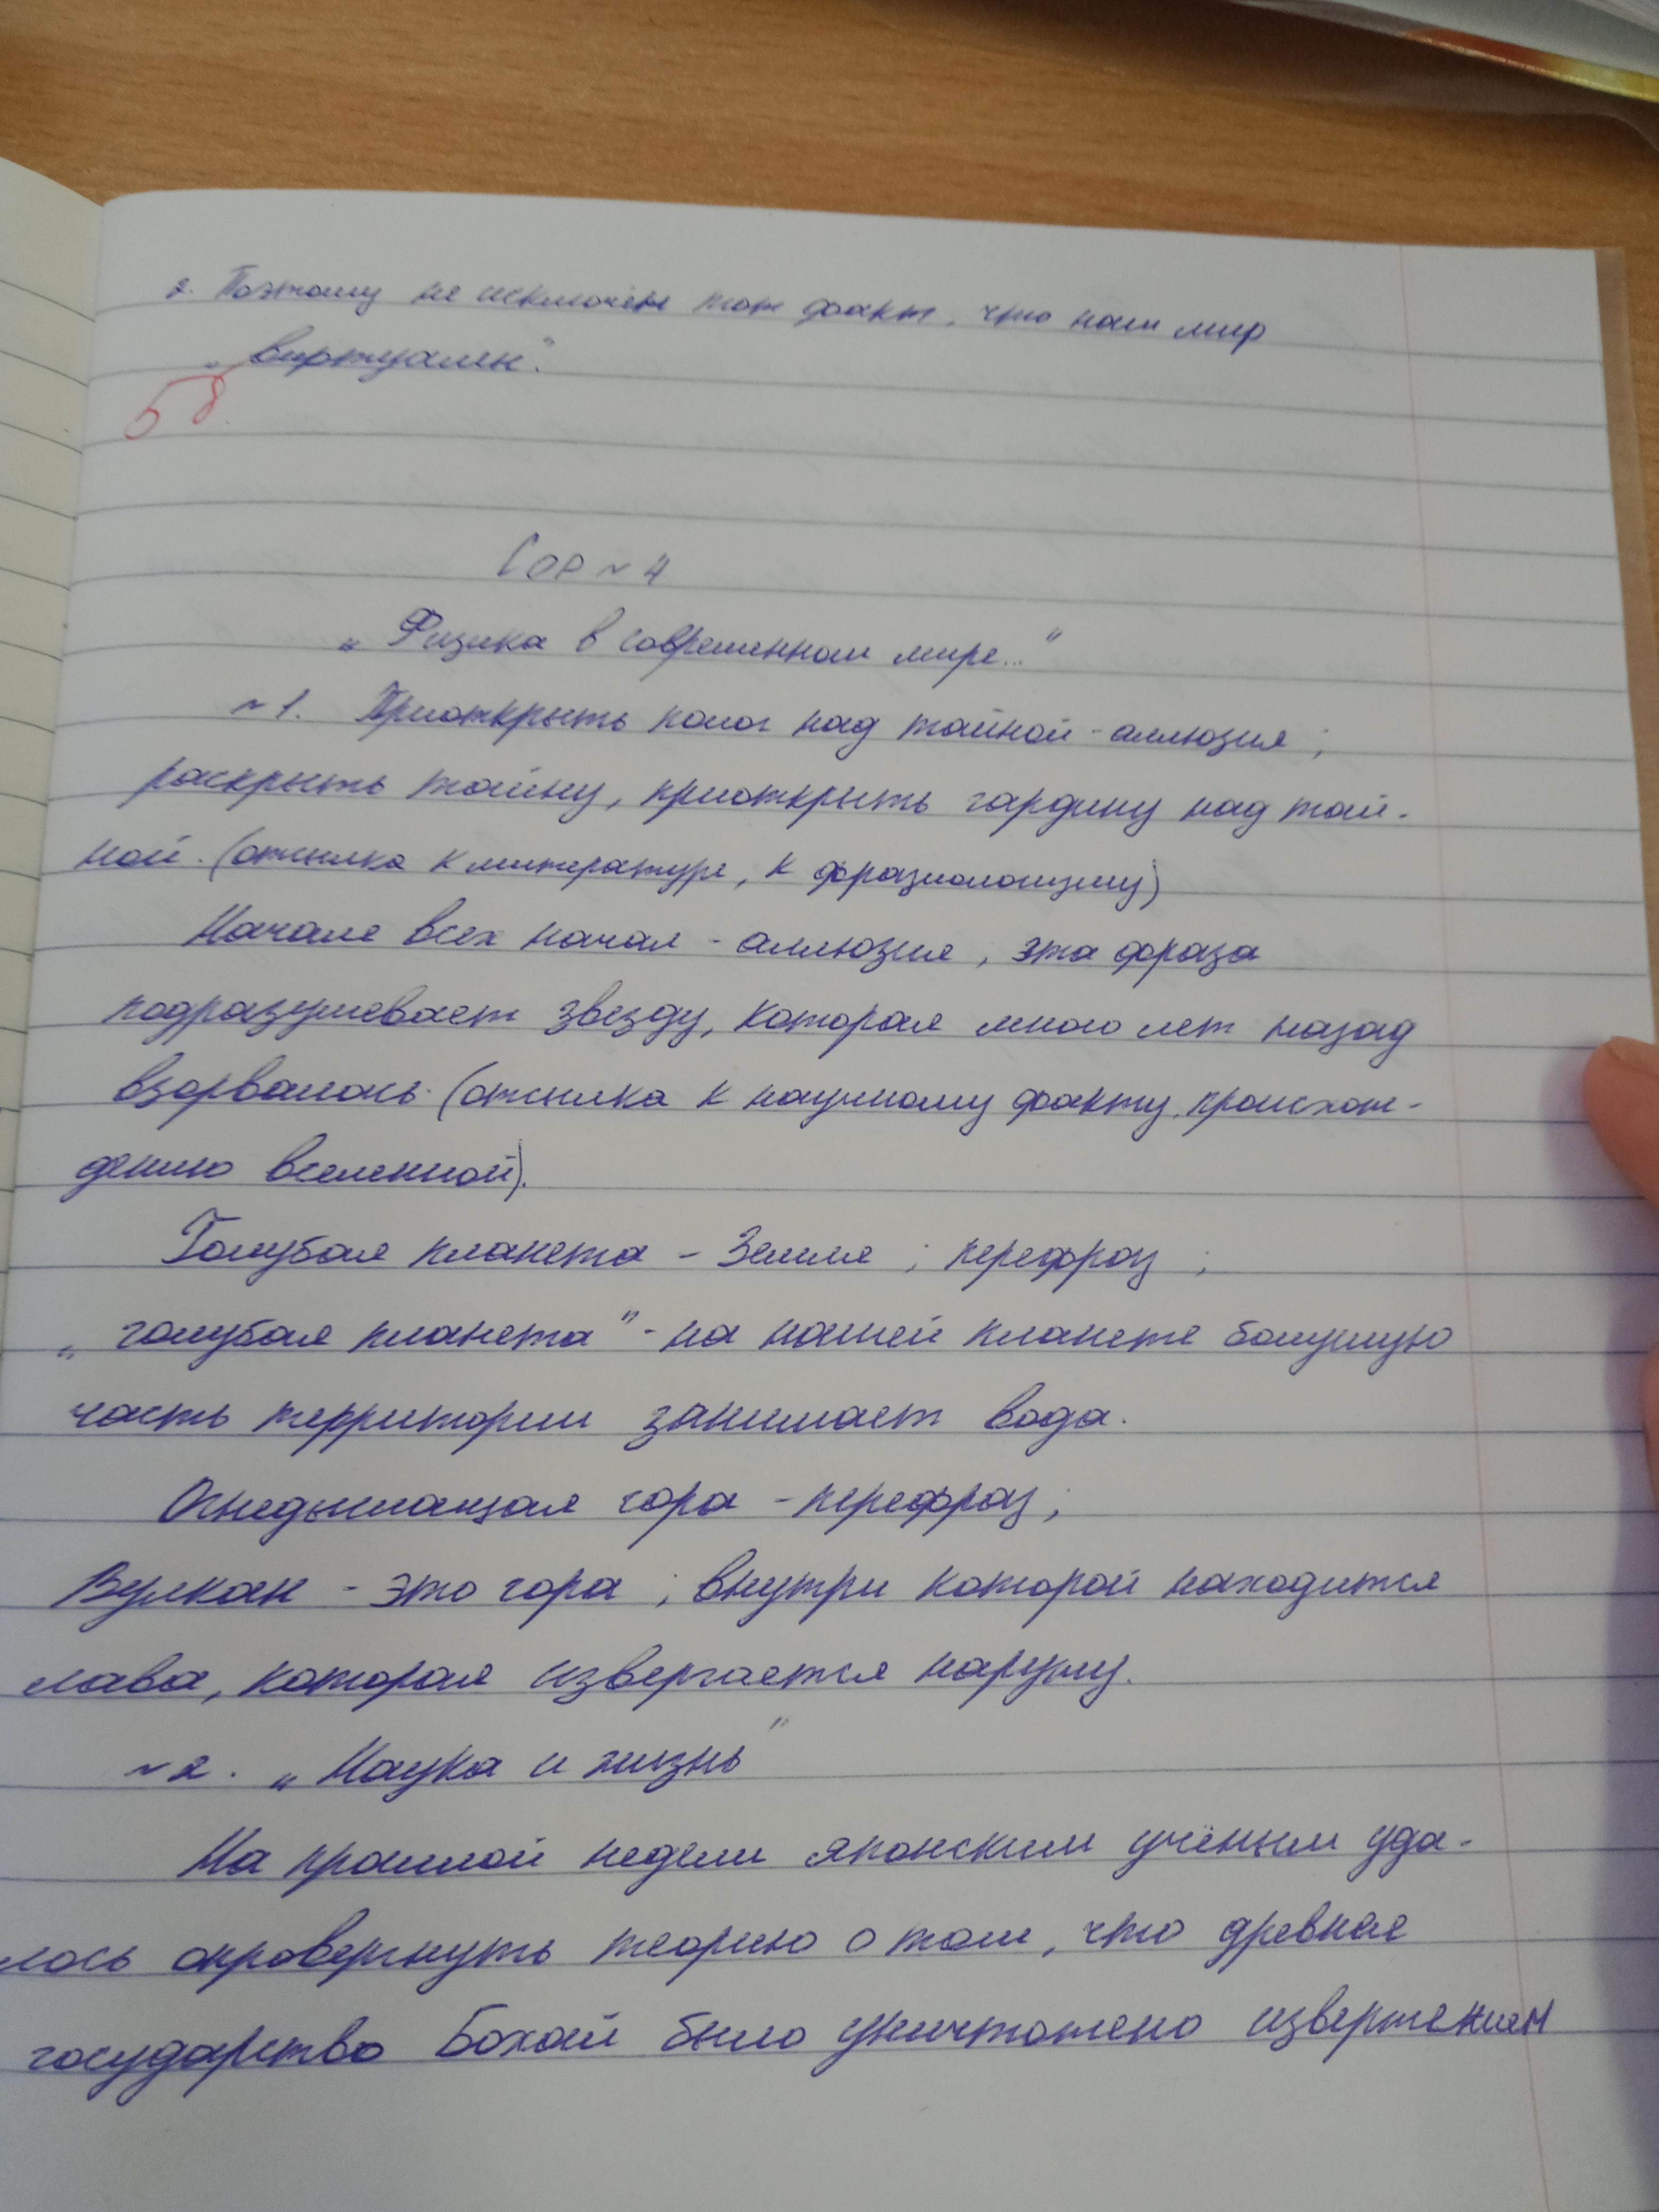 2. Поэтому не исключён тот факт, что наш мир
„виртуален".
5 б.
Сор ~ 4
„Физика в современном мире..."
~1. Приоткрыть полог над тайной - аллюзия;
раскрыть тайну, приоткрыть гардину над тай-
ной. (отсылка к литературе, к фразиологизму)
Начало всех начал - аллюзия, эта фраза
подразумевает звезду, которая много лет назад
взорвалась. (отсылка к научному факту, происхож-
дению вселенной).
Голубая планета - Земля; перефраз;
„голубая планета" - на нашей планете большую
часть территории занимает вода.
Огнедышащая гора - перефраз;
Вулкан - это гора, внутри которой находится
лава, которая извергается наружу.
~2. „Наука и жизнь"
На прошлой недели японским учёным уда-
лось опровергнуть теорию о том, что древнее
государство Бохай было уничтожено извержением